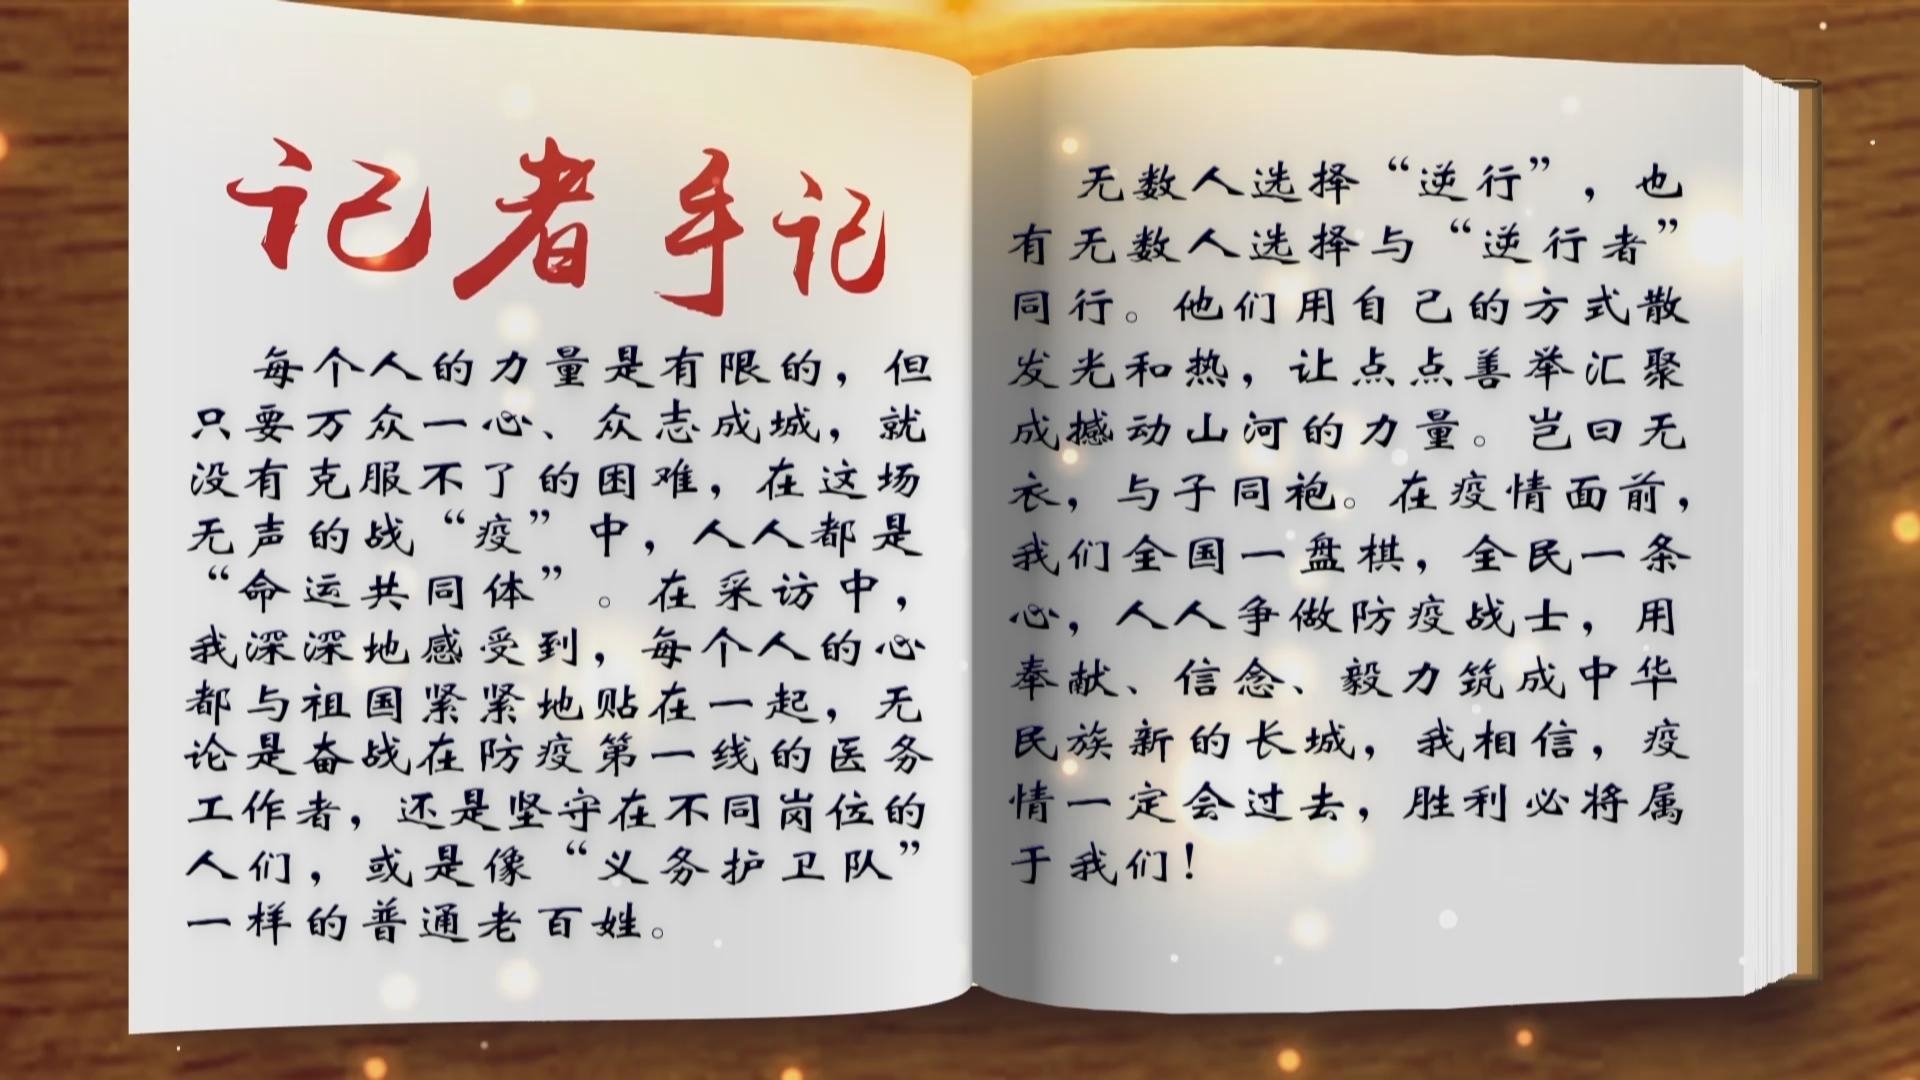 记者手记
每个人的力量是有限的，但
只要万众一心、众志成城，就
没有克服不了的困难，在这场
无声的战“疫”中，人人都是
“命运共同体”。在采访中，
我深深地感受到，每个人的心
都与祖国紧紧地贴在一起，无
论是奋战在防疫第一线的医务
工作者，还是坚守在不同岗位的
人们，或是像“义务护卫队”
一样的普通老百姓。
无数人选择“逆行”，也
有无数人选择与“逆行者”
同行。他们用自己的方式散
发光和热，让点点善举汇聚
成撼动山河的力量。岂曰无
衣，与子同袍。在疫情面前，
我们全国一盘棋，全民一条
心，人人争做防疫战士，用
奉献、信念、毅力筑成中华
民族新的长城，我相信，疫
情一定会过去，胜利必将属
于我们！